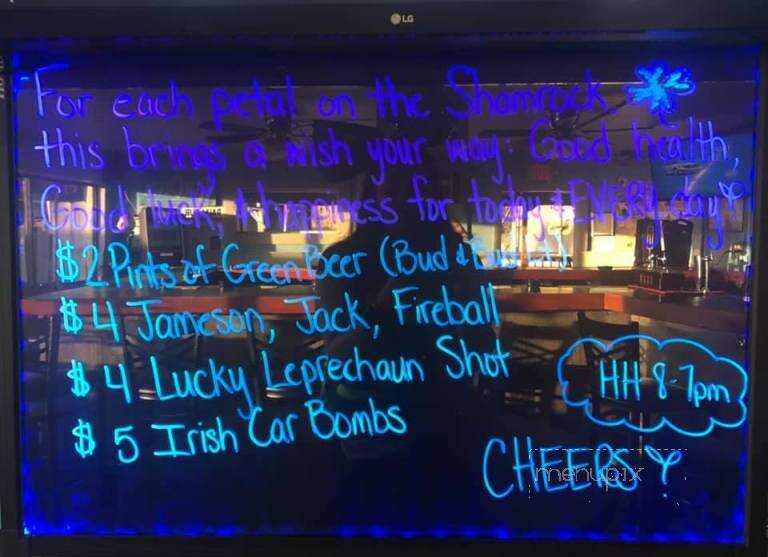 LG
For each petal on the Shamrock
this brings a wish your way: Good health,
Good luck, & happiness for today & EVERY day
$2 Pints of Green Beer (Bud & Bud Lt)
$4 Jameson, Jack, Fireball
$4 Lucky Leprechaun Shot
$5 Irish Car Bombs
HH 8-7pm
CHEERS
menupix